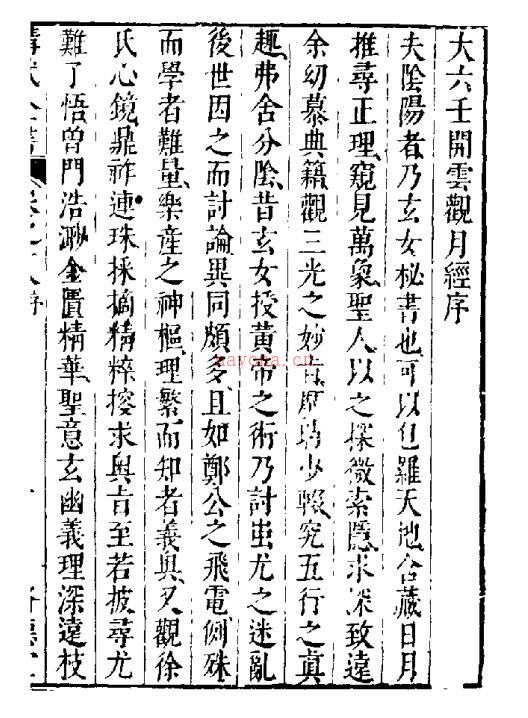 大六壬開雲觀月經序
夫陰陽者乃玄女秘書也可以包羅天地含藏日月
推尋正理窺見萬象聖人以之探微索隱求深致遠
余幼慕典籍觀三光之妙旨歷鳥少輟究五行之眞
趣弗舍分陰昔玄女授黃帝之術乃討蚩尤之迷亂
後世因之而討論異同頗多且如鄭公之飛電例殊
而學者難量樂産之神樞理繁而知者義奥又觀徐
氏心鏡鼎祚連珠採摘精粹搜求奥旨至若披尋尤
難了悟曾門浩渺金匱精華聖意玄幽義理深遠枝
nayona.cn